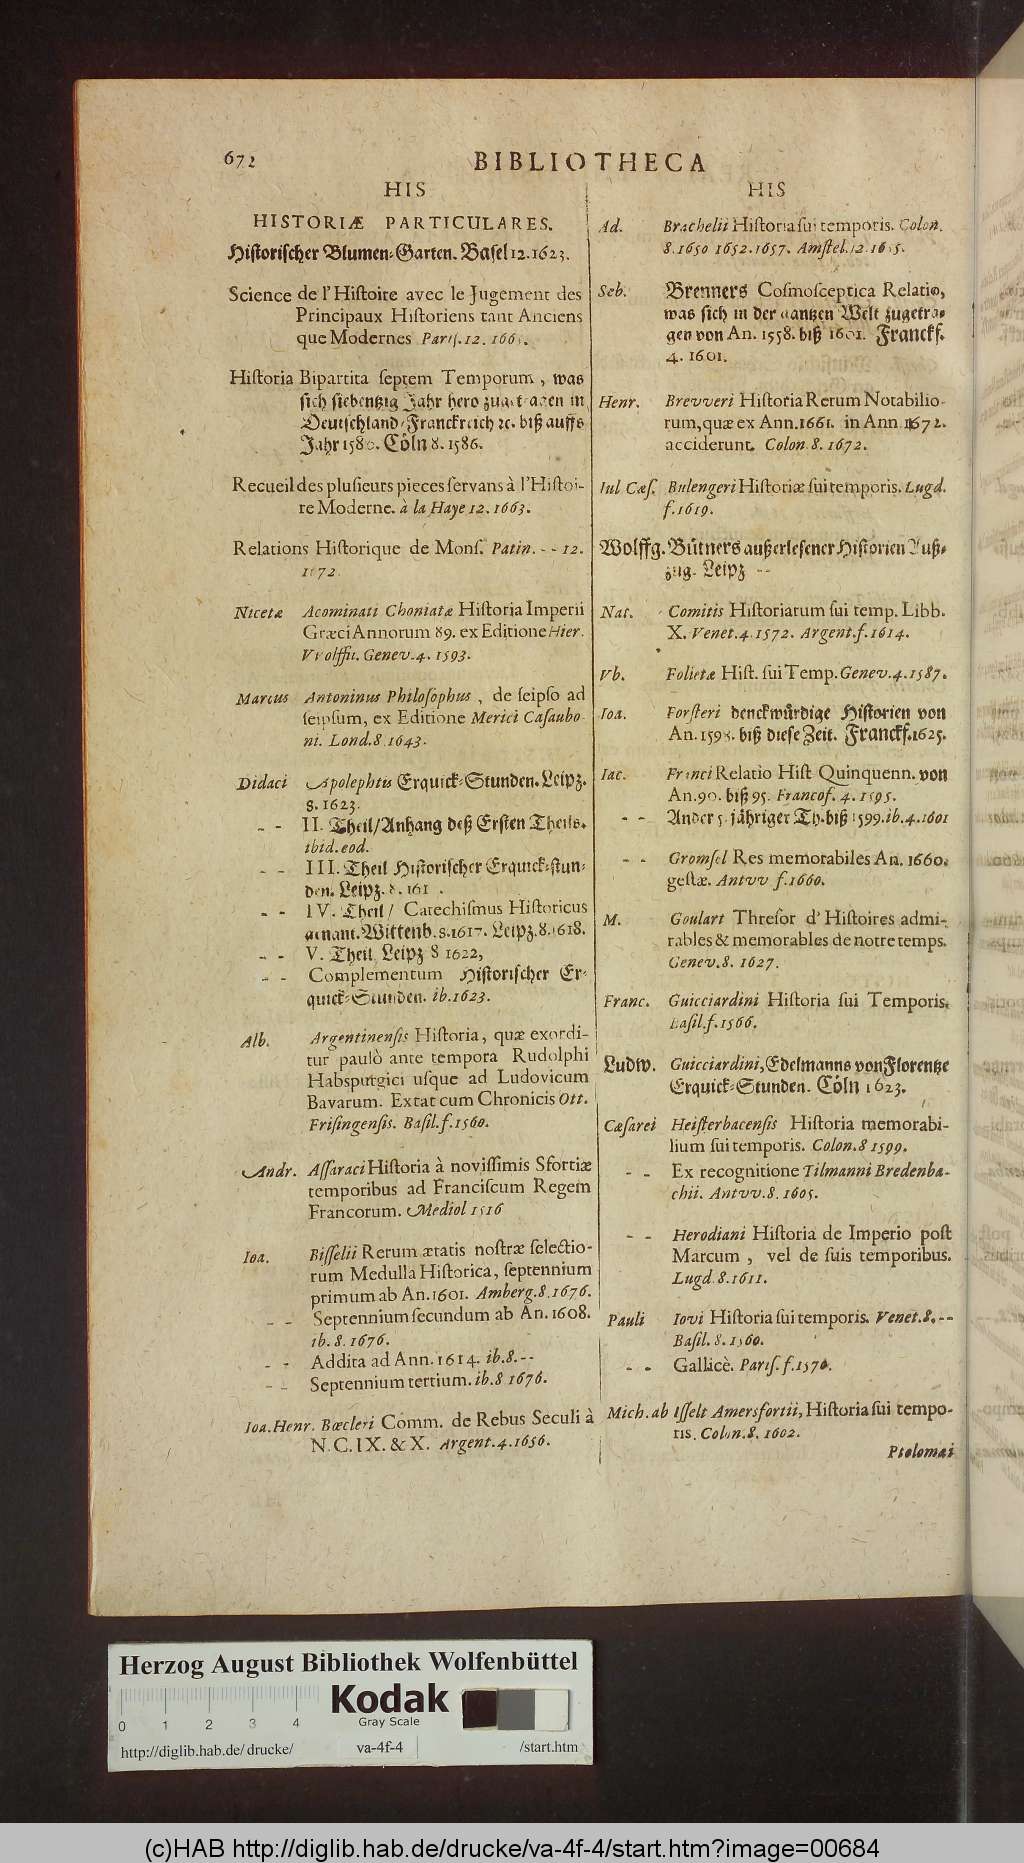 672
BIBLIOTHECA
HIS
HISTORIÆ PARTICULARES.
Historischer Blumen-Garten. Basel 12. 1623.
Science de l'Histoire avec le Jugement des
Principaux Historiens tant Anciens
que Modernes Paris. 12.
Historia Bipartita septem Temporum, was
sich siebentzig Jahr hero zugetragen in
Deutschland/Franckreich ꝛc. biß auffs
Jahr Cöln 8. 1586.
Recueil des plusieurs pieces servans à l'Histoi-
re Moderne. à la Haye 12. 1663.
Relations Historique de Mons. Patin. - - 12.
1672.
Nicetæ Acominati Choniatæ Historia Imperii
Græci Annorum 89. ex Editione Hier.
VVolffii. Genev. 4. 1593.
Marcus Antoninus Philosophus, de seipso ad
seipsum, ex Editione Merici Casaubo-
ni. Lond. 8. 1643.
Didaci Apolephtis Erquick-Stunden. Leipz.
8. 1623.
- - II. Theil/Anhang deß Ersten Theils.
ibid. eod.
- - III. Theil Historischer Erquick-stun-
den. Leipz. 8.
- - IV. Theil/ Catechismus Historicus
genant. Wittenb. 8. 1617. Leipz. 8. 1618.
- - V. Theil Leipz 8 1622,
- - Complementum Historischer Er-
quick-Stunden. ib. 1623.
Alb. Argentinensis Historia, quæ exordi-
tur paulò ante tempora Rudolphi
Habspurgici usque ad Ludovicum
Bavarum. Extat cum Chronicis Ott.
Frisingensis. Basil. f. 1560.
Andr. Assaraci Historia à novissimis Sfortiæ
temporibus ad Franciscum Regem
Francorum. Mediol 1516
Ioa. Bisselii Rerum ætatis nostræ selectio-
rum Medulla Historica, septennium
primum ab An. 1601. Amberg. 8. 1676.
- - Septennium secundum ab An. 1608.
ib. 8. 1676.
- - Addita ad Ann. 1614. ib. 8. --
- - Septennium tertium. ib. 8 1676.
Ioa. Henr. Bœcleri Comm. de Rebus Seculi à
N. C. IX. & X. Argent. 4. 1656.
HIS
Ad. Brachelii Historia sui temporis. Colon.
8. 1650 1652. 1657. Amstel. 12.
Seb. Brenners Cosmosceptica Relatio,
was sich in der gantzen Welt zugetra-
gen von An. 1558. biß 1601. Franckf.
4. 1601.
Henr. Brevveri Historia Rerum Notabilio-
rum, quæ ex Ann. 1661. in Ann 1672.
acciderunt. Colon. 8. 1672.
Iul Cæs. Bulengeri Historiæ sui temporis. Lugd.
f. 1619.
Wolffg. Bütners außerlesener Historien Auß-
zug. Leipz --
Nat. Comitis Historiarum sui temp. Libb.
X. Venet. 4. 1572. Argent. f. 1614.
Vb. Folietæ Hist. sui Temp. Genev. 4. 1587.
Ioa. Forsteri denckwürdige Historien von
An. 1598. biß diese Zeit. Franckf. 1625.
Iac. Franci Relatio Hist Quinquenn. von
An. 90. biß 95. Francof. 4. 1595.
- - Ander 5 jähriger Th. biß 1599. ib. 4. 1601
- - Gromsel Res memorabiles An. 1660.
gestæ. Antvv f. 1660.
M. Goulart Thresor d'Histoires admi-
rables & memorables de notre temps.
Genev. 8. 1627.
Franc. Guicciardini Historia sui Temporis.
Basil. f. 1566.
Ludw. Guicciardini, Edelmanns von Florentze
Erquick-Stunden. Cöln 1623.
Cæsarei Heisterbacensis Historia memorabi-
lium sui temporis. Colon. 8 1599.
- - Ex recognitione Tilmanni Bredenba-
chii. Antvv. 8. 1605.
- - Herodiani Historia de Imperio post
Marcum, vel de suis temporibus.
Lugd. 8. 1611.
Pauli Iovi Historia sui temporis. Venet. 8. --
Basil. 8. 1560.
- - Gallicè. Paris. f. 1570.
Mich. ab Isselt Amersfortii, Historia sui tempo-
ris. Colon. 8. 1602.
Ptolomæi
Herzog August Bibliothek Wolfenbüttel
Kodak
Gray Scale
0 1 2 3 4
http://diglib.hab.de/drucke/ va-4f-4 /start.htm
(c)HAB http://diglib.hab.de/drucke/va-4f-4/start.htm?image=00684